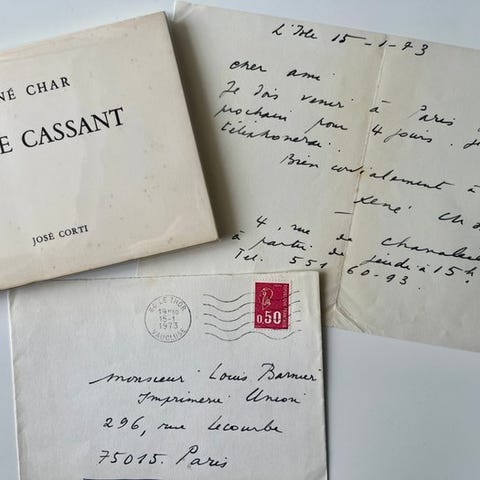 NÉ CHAR
E CASSANT
JOSÉ CORTI
L'Isle 15-1-73
cher ami
Je dois venir à Paris
prochain pour 4 jours. Je
téléphonerai.
Bien cordialement à
René Ch
4, rue de Chanaleil
à partir de jeudi à 15h
Tel. 551 60-93.
84 LE THOR
15-1
1973
VAUCLUSE
0,50
Monsieur Louis Barnier
Imprimerie Union
296, rue Lecourbe
75015. Paris